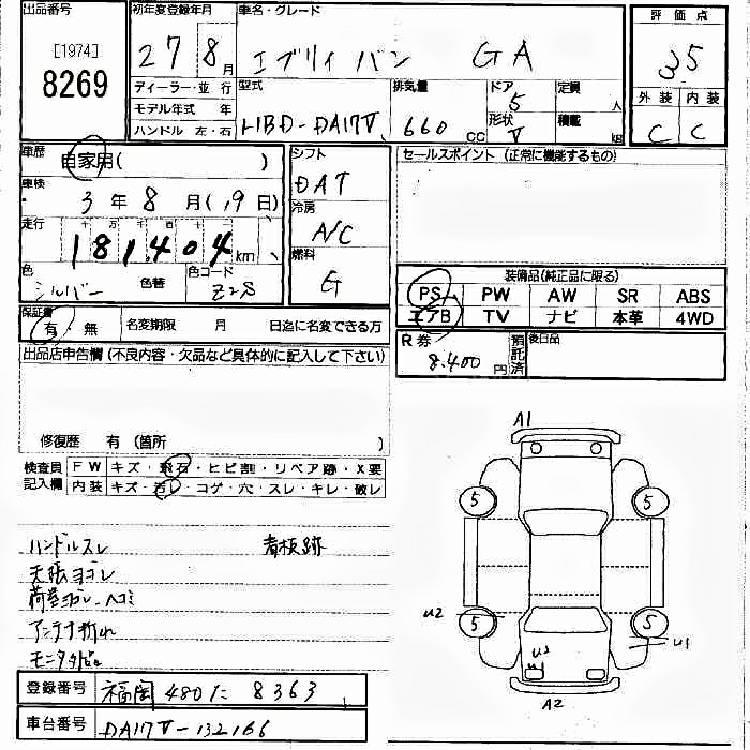 出品番号
[1974]
8269
初年度登録年月
27 8月
車名・グレード
エブリィ バン GA
評価点
3.5
外装 内装
C C
ディーラー・並行
モデル年式 年
ハンドル 左・右
型式
HBD-DA17V
排気量
660 CC
ドア
5
形状
V
定員
人
積載
kg
車歴
自家用( )
車検
3年8月(19日)
走行
十 万 千 百 十
181404 km
色
シルバー
色替
色コード
Z2S
シフト
DAT
冷房
A/C
燃料
G
セールスポイント (正常に機能するもの)
装備品(純正品に限る)
PS PW AW SR ABS
エアB TV ナビ 本革 4WD
保証書
有・無
名変期限 月 日迄に名変できる方
R券
8,400円
預託済
後日品
出品店申告欄(不良内容・欠品など具体的に記入して下さい)
修復歴 有 (箇所 )
検査員記入欄
FW キズ・飛石・ヒビ割・リペア跡・X要
内装 キズ・汚レ・コゲ・穴・スレ・キレ・破レ
ハンドルスレ 看板跡
天張ヨゴレ
荷室ヨゴレ・ヘコミ
アンテナ折れ
A1
5 5
5 5
U2
U1
A2
登録番号 福岡 480 た 8363
車台番号 DA17V-132166